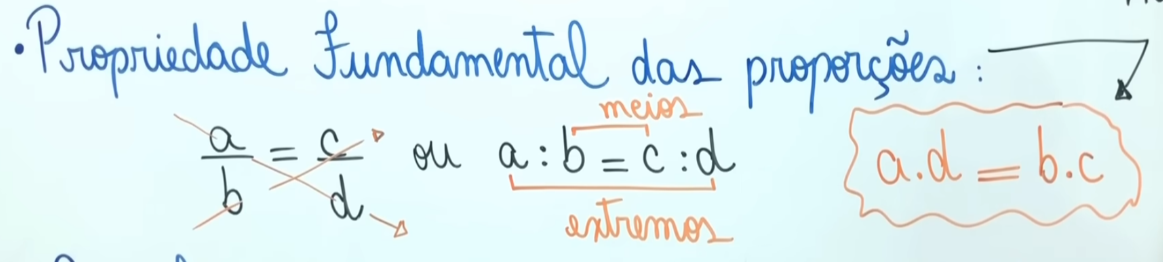 • Propriedade Fundamental das proporções:
meios
a/b = c/d ou a : b = c : d
extremos
a.d = b.c